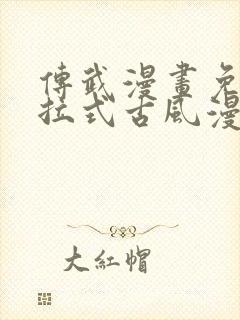 傳武漫畫免
拉式古風漫
大紅帽